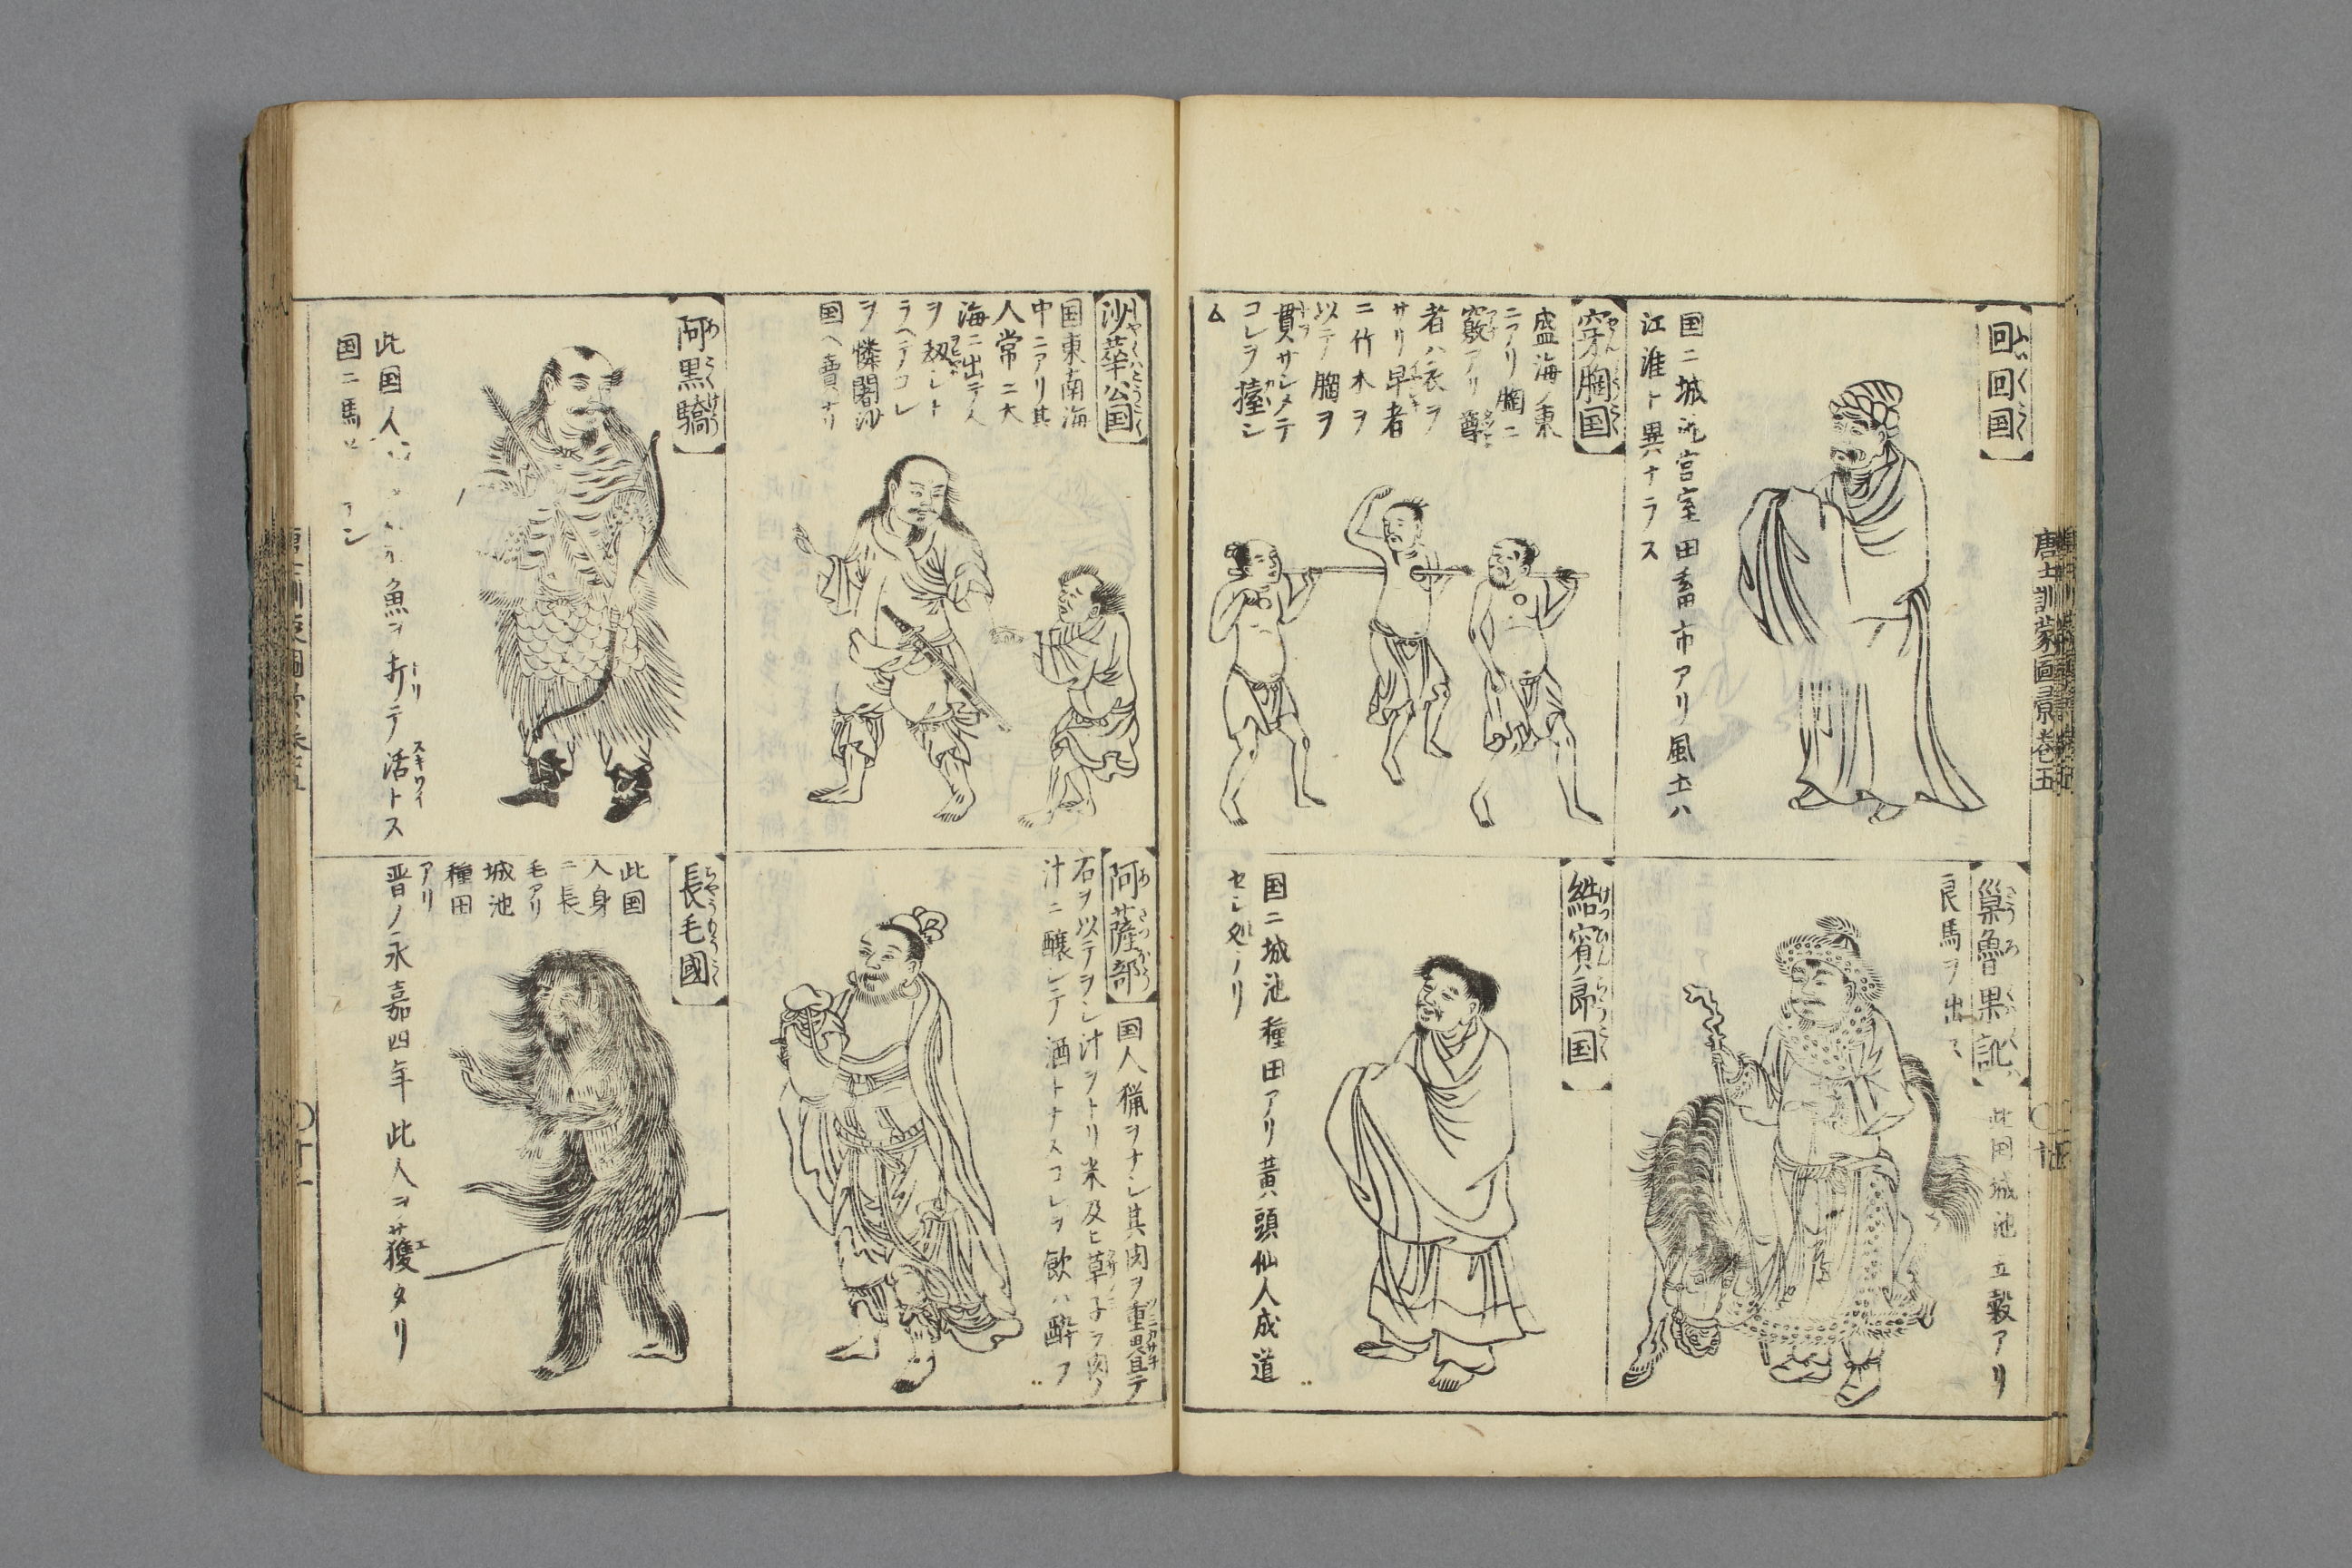 唐土訓蒙圖彙巻五
回回国
国ニ城池宮室田畜市アリ風土ハ
江淮ト異ナラス
穿胸国
盛海ノ東
ニアリ胸ニ
竅アリ尊
者ハ衣ヲ
サリ卑者
ニ竹木ヲ
以テ胸ヲ
貫サシメテ
コレヲ擡シ
ム
巣魯果訛
此国城池五穀アリ
良馬ヲ出ス
結賓郎国
国ニ城池種田アリ黄頭仙人成道
セシ処ナリ
沙華公国
国東南海
中ニアリ其
人常ニ大
海ニ出テ人
ヲ劫シト
ラヘテコレ
ヲ闍
国ヘ賣ナリ
阿黒驕
此国人
魚ヲ テ活トス
国ニ馬
阿薩部
国人猟ヲナシ其肉ヲ重畳且テ
石ヲ以テヲシ汁ヲトリ米及ヒ草子ヲ肉ノ
汁ニ醸シテ酒トナスコレヲ飲ハ酔フ
長毛國
此国
人身
ニ長
毛アリ
城池
種田
アリ
晋ノ永嘉四年此人ヲ獲タリ